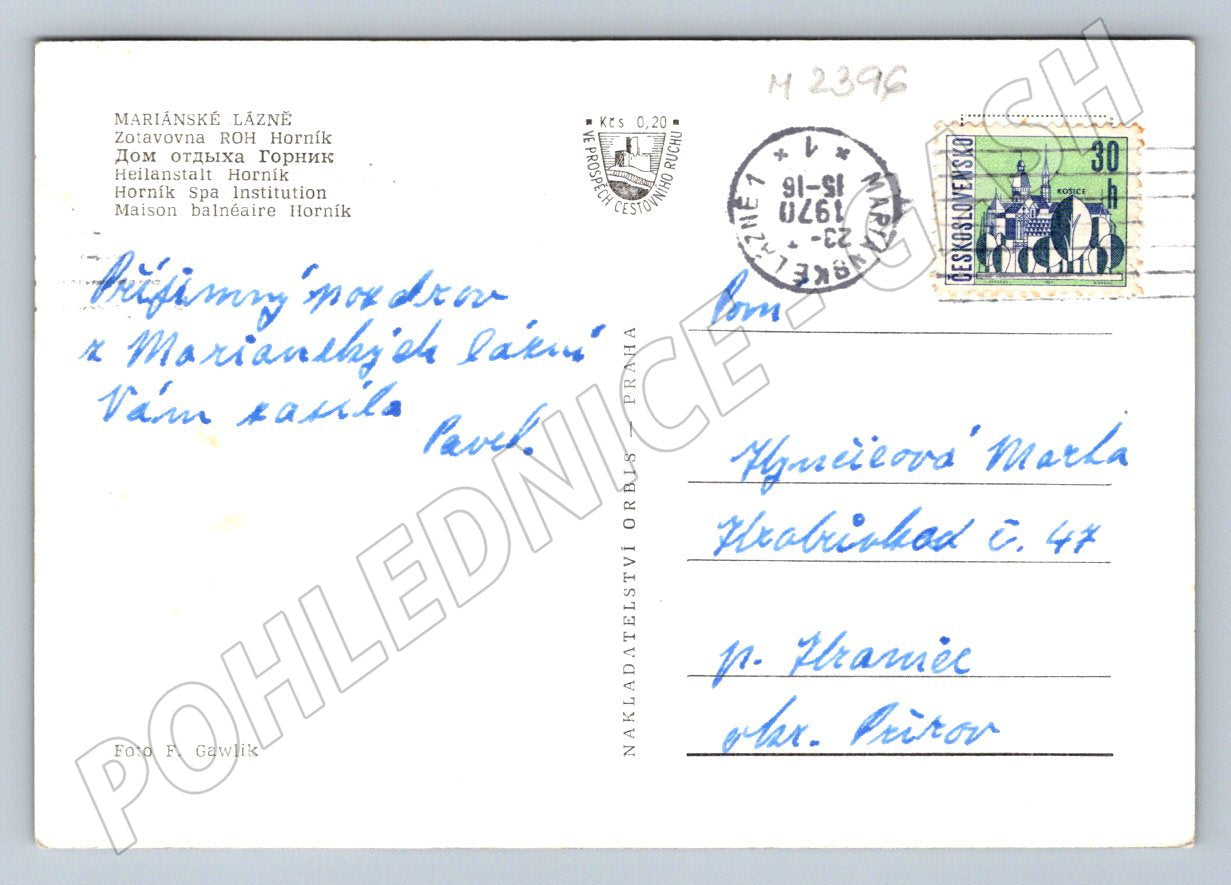 M 2396
MARIÁNSKÉ LÁZNĚ
Zotavovna ROH Horník
Дом отдыха Горник
Heilanstalt Horník
Horník Spa Institution
Maison balnéaire Horník
Kčs 0,20
VE PROSPĚCH CESTOVNÍHO RUCHU
MARIÁNSKÉ LÁZNĚ 1
23.
1970
15-16
* 1 *
ČESKOSLOVENSKO
30 h
KOŠICE
Příjimný pozdrov
z Marianských lázní
Vám zasíla
Pavel.
NAKLADATELSTVÍ ORBIS — PRAHA
Pom
Hynčicová Marta
Hrabůvka č. 47
p. Hranice
okr. Přerov
Foto F. Gawlik
POHLEDNICE - GASH